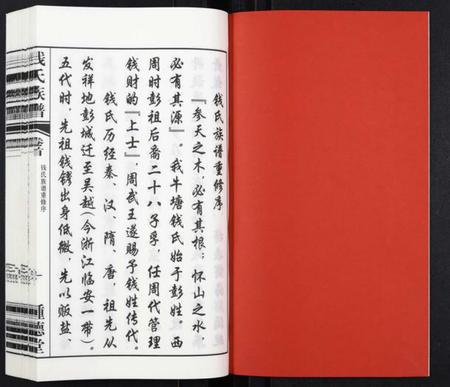 钱氏族谱重修序
『参天之木，必有其根；怀山之水，
必有其源』。我牛塘钱氏始于彭姓。西
周时彭祖后裔二十八子孚，任周代管理
钱财的『上士』，周武王遂赐予钱姓传代。
钱氏历经秦、汉、隋、唐，祖先从
发祥地彭城迁至吴越（今浙江临安一带）。
五代时，先祖钱镠出身低微，先以贩盐
钱氏族谱
钱氏族谱重修序